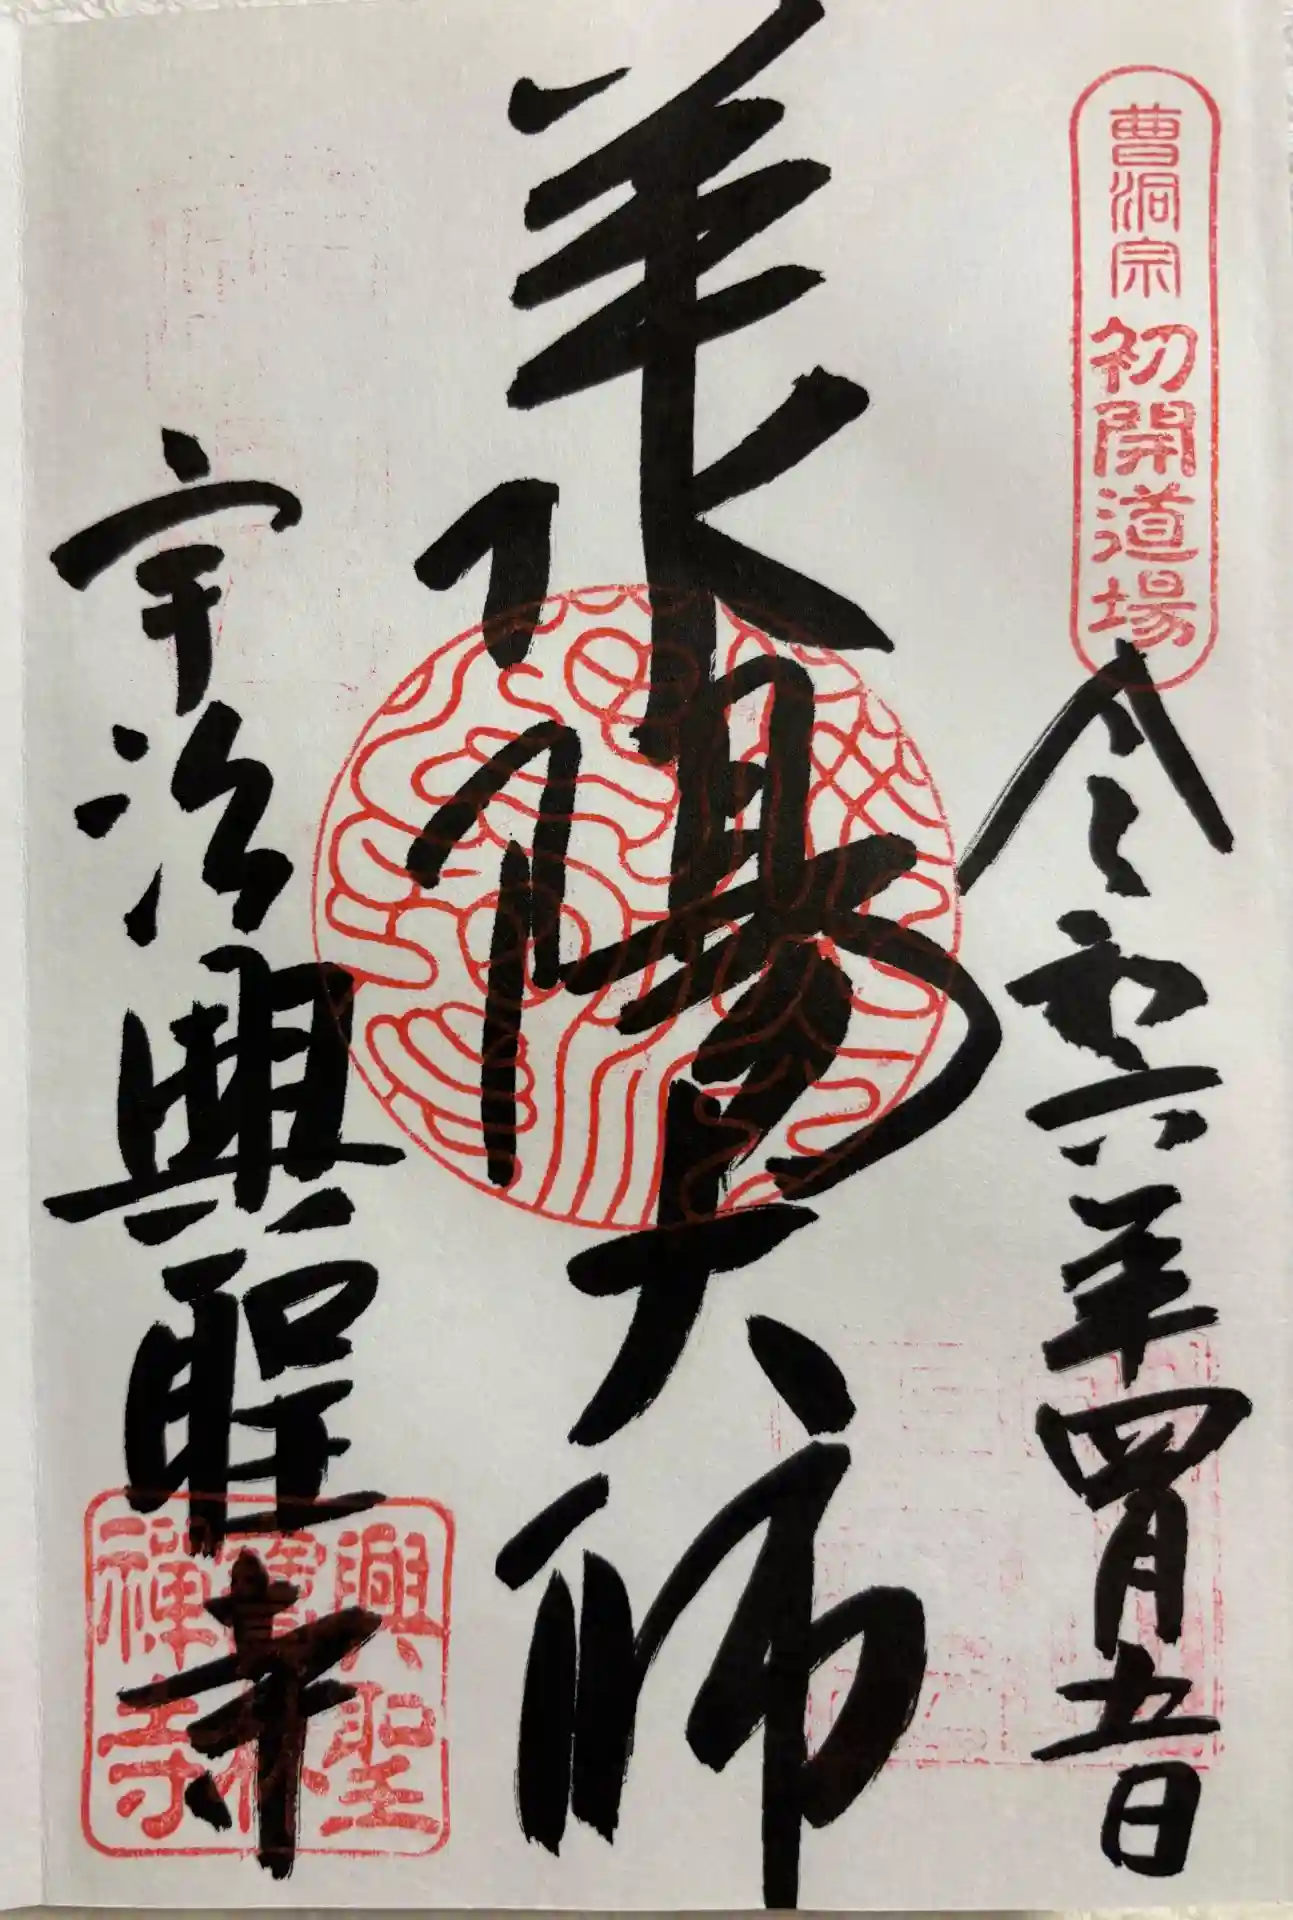 曹洞宗 初開道場
令和六年四月五日
承陽大師
宇治興聖寺
興聖
寶林
禅寺